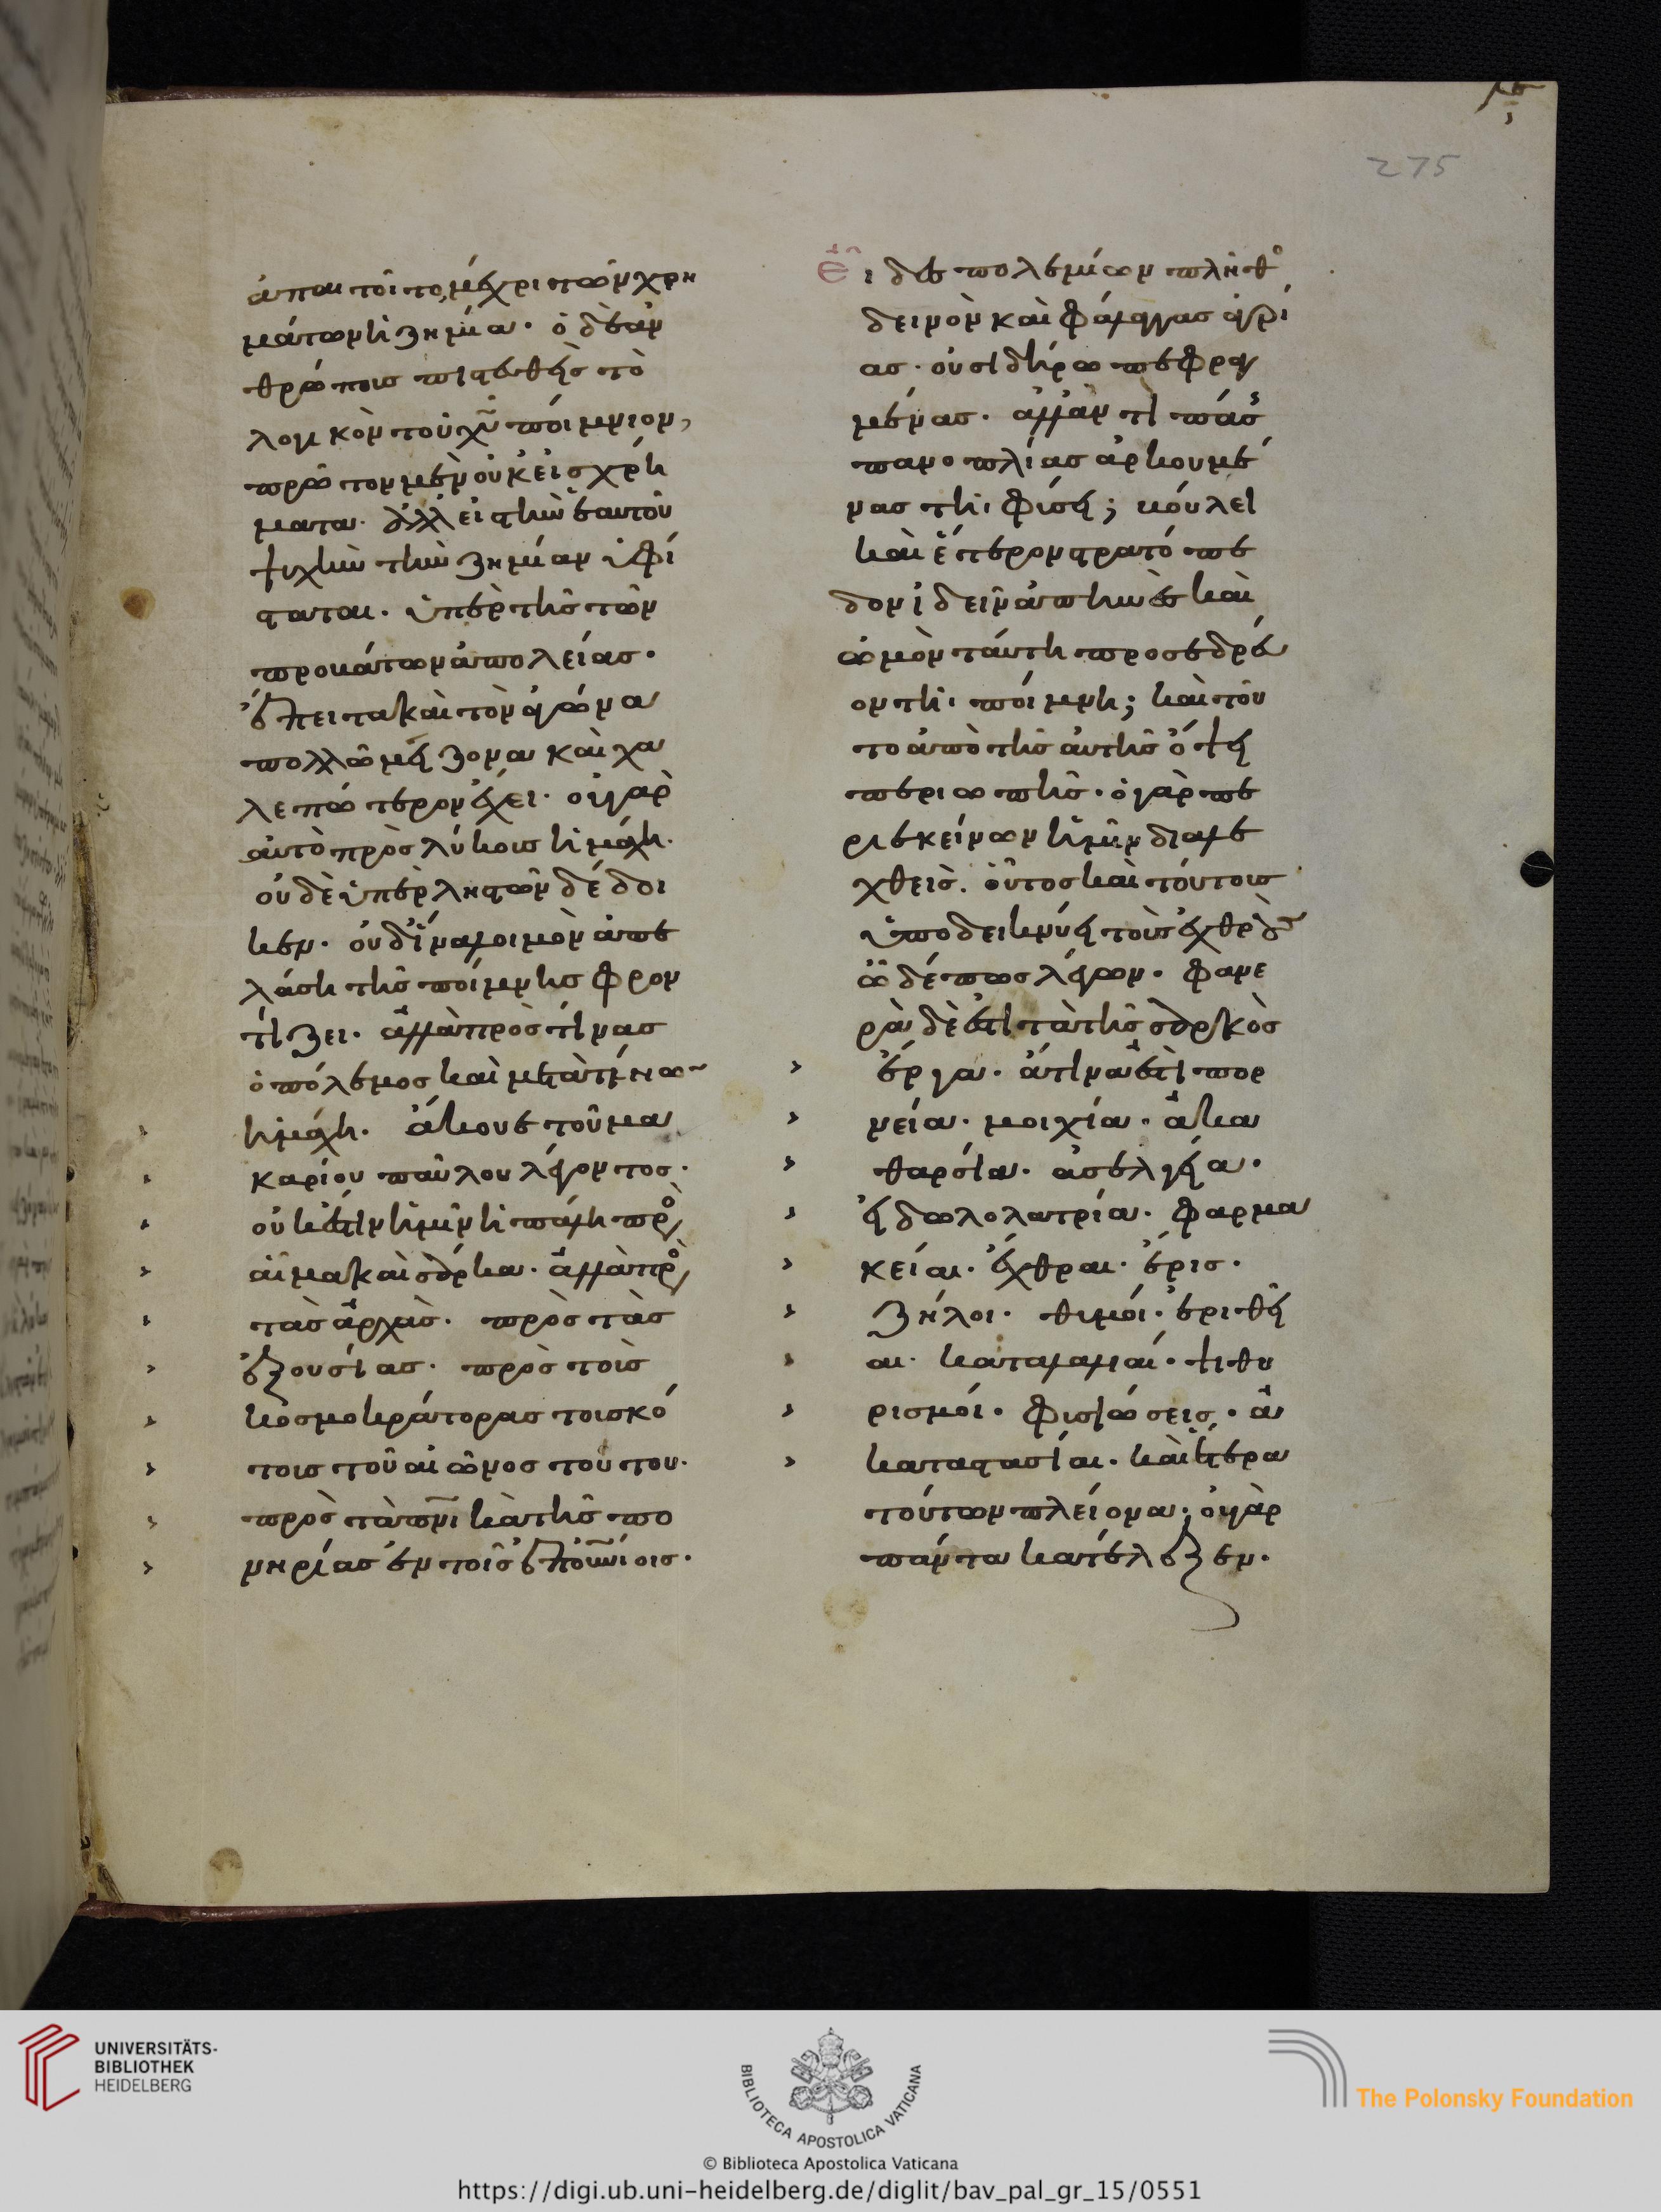 275
ἀπαιτοῖτο, μέχρι τῶν χρη
μάτων ἡ ζημία· ὁ δὲ ἀν
θρώποις πιστευθεὶς τὸ
λογικὸν τοῦ χυ ποίμνιον,
πρῶτον μὲν οὐκ εἰς χρή
ματα· ἀλλ εἰς τὴν ἑαυτοῦ
ψυχὴν τὴν ζημίαν ὑφί
σταται· ὑπὲρ τῆς τῶν
προβάτων ἀπολείας·
ἔπειτα καὶ τὸν ἀγῶνα
πολλῶ μείζονα καὶ χα
λεπώτερον ἔχει· οὐ γὰρ
αὐτὸ πρὸς λύκους ἡ μάχη·
οὐδὲ ὑπὲρ ληστῶν δέδοι
κεν· οὐδ ἵνα λοιμὸν ἀπε
λάση τῆς ποίμνης φρον
τίζει· ἀλλὰ πρὸς τίνας
ὁ πόλεμος καὶ μετὰ τίνων
ἡ μάχη· ἄκουε τοῦ μα
καρίου παύλου λέγοντος·
οὐκ ἔστιν ἡμῖν ἡ πάλη πρὸς
αἷμα καὶ σάρκα· ἀλλὰ πρὸς
τὰς ἀρχάς· πρὸς τὰς
ἐξουσίας· πρὸς τοὺς
κοσμοκράτορας τοῦ σκό
τους τοῦ αἰῶνος τούτου·
πρὸς τὰ πνι κὰ τῆς πο
νηρίας ἐν τοῖς ἐπουνίοις·
Εἶδες πολεμίων πλῆθος
δεινὸν καὶ φάλαγγας ἀγρί
ας· οὐ σιδήρω πεφραγ
μένας· ἀλλ ἀντὶ πάσης
πανοπλίας ἀρκουμέ
νας τῆ φύσει; βούλει
καὶ ἕτερον στρατόπε
δον ἰδεῖν ἀπηνὲς καὶ
ὠμὸν ταύτη προσεδρεῦ
ον τῆ ποίμνη; καὶ τοῦ
το ἀπὸ τῆς αὐτῆς ὄψει
περιωπῆς· ὁ γὰρ πε
ρὶ ἐκείνων ἡμῖν διαλε
χθεὶς· οὗτος καὶ τούτους
ὑποδεικνύει τοὺς ἐχθροὺς
ὧδέ πως λέγων· φανε
ρὰ δέ ἐστι τὰ τῆς σαρκὸς
ἔργα· ἅτινά ἐστι πορ
νεία· μοιχία· ἀκα
θαρσία· ἀσέλγεια·
εἰδωλολατρία· φαρμα
κείαι· ἔχθραι· ἔρις·
ζήλοι· θυμοί· ἐριθεῖ
αι· καταλαλιαί· ψιθυ
ρισμοί· φυσιώσεις· ἀ
καταστασίαι· καὶ ἕτερα
τούτων πλείονα· οὐ γὰρ
πάντα κατέλεξεν·
UNIVERSITÄTS-
BIBLIOTHEK
HEIDELBERG
BIBLIOTECA APOSTOLICA VATICANA
The Polonsky Foundation
© Biblioteca Apostolica Vaticana
https://digi.ub.uni-heidelberg.de/diglit/bav_pal_gr_15/0551